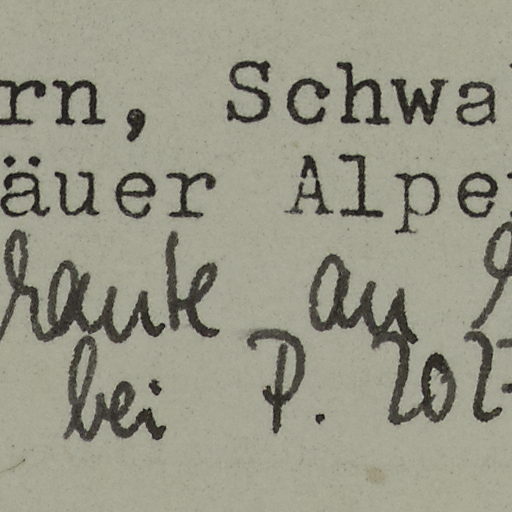 rn, Schwa
äuer Alpe
hraute an
bei P. 202